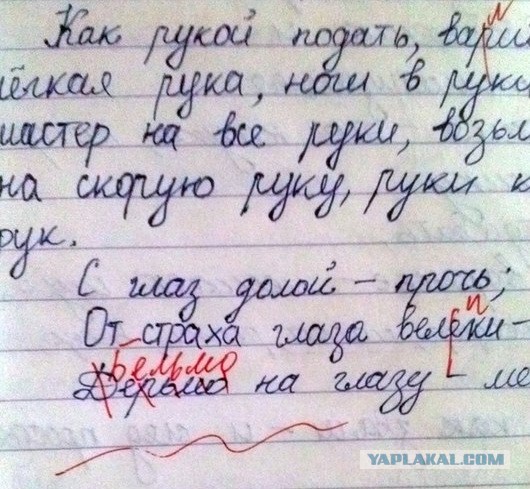 Как рукой подать, вари
лёгкая рука, ноги в руки
мастер на все руки, возьм
на скорую руку, руки к
рук.
С глаз долой – прочь;
От страха глаза велеки –
бельмо
Дерьмо на глазу – ме
YAPLAKAL.COM